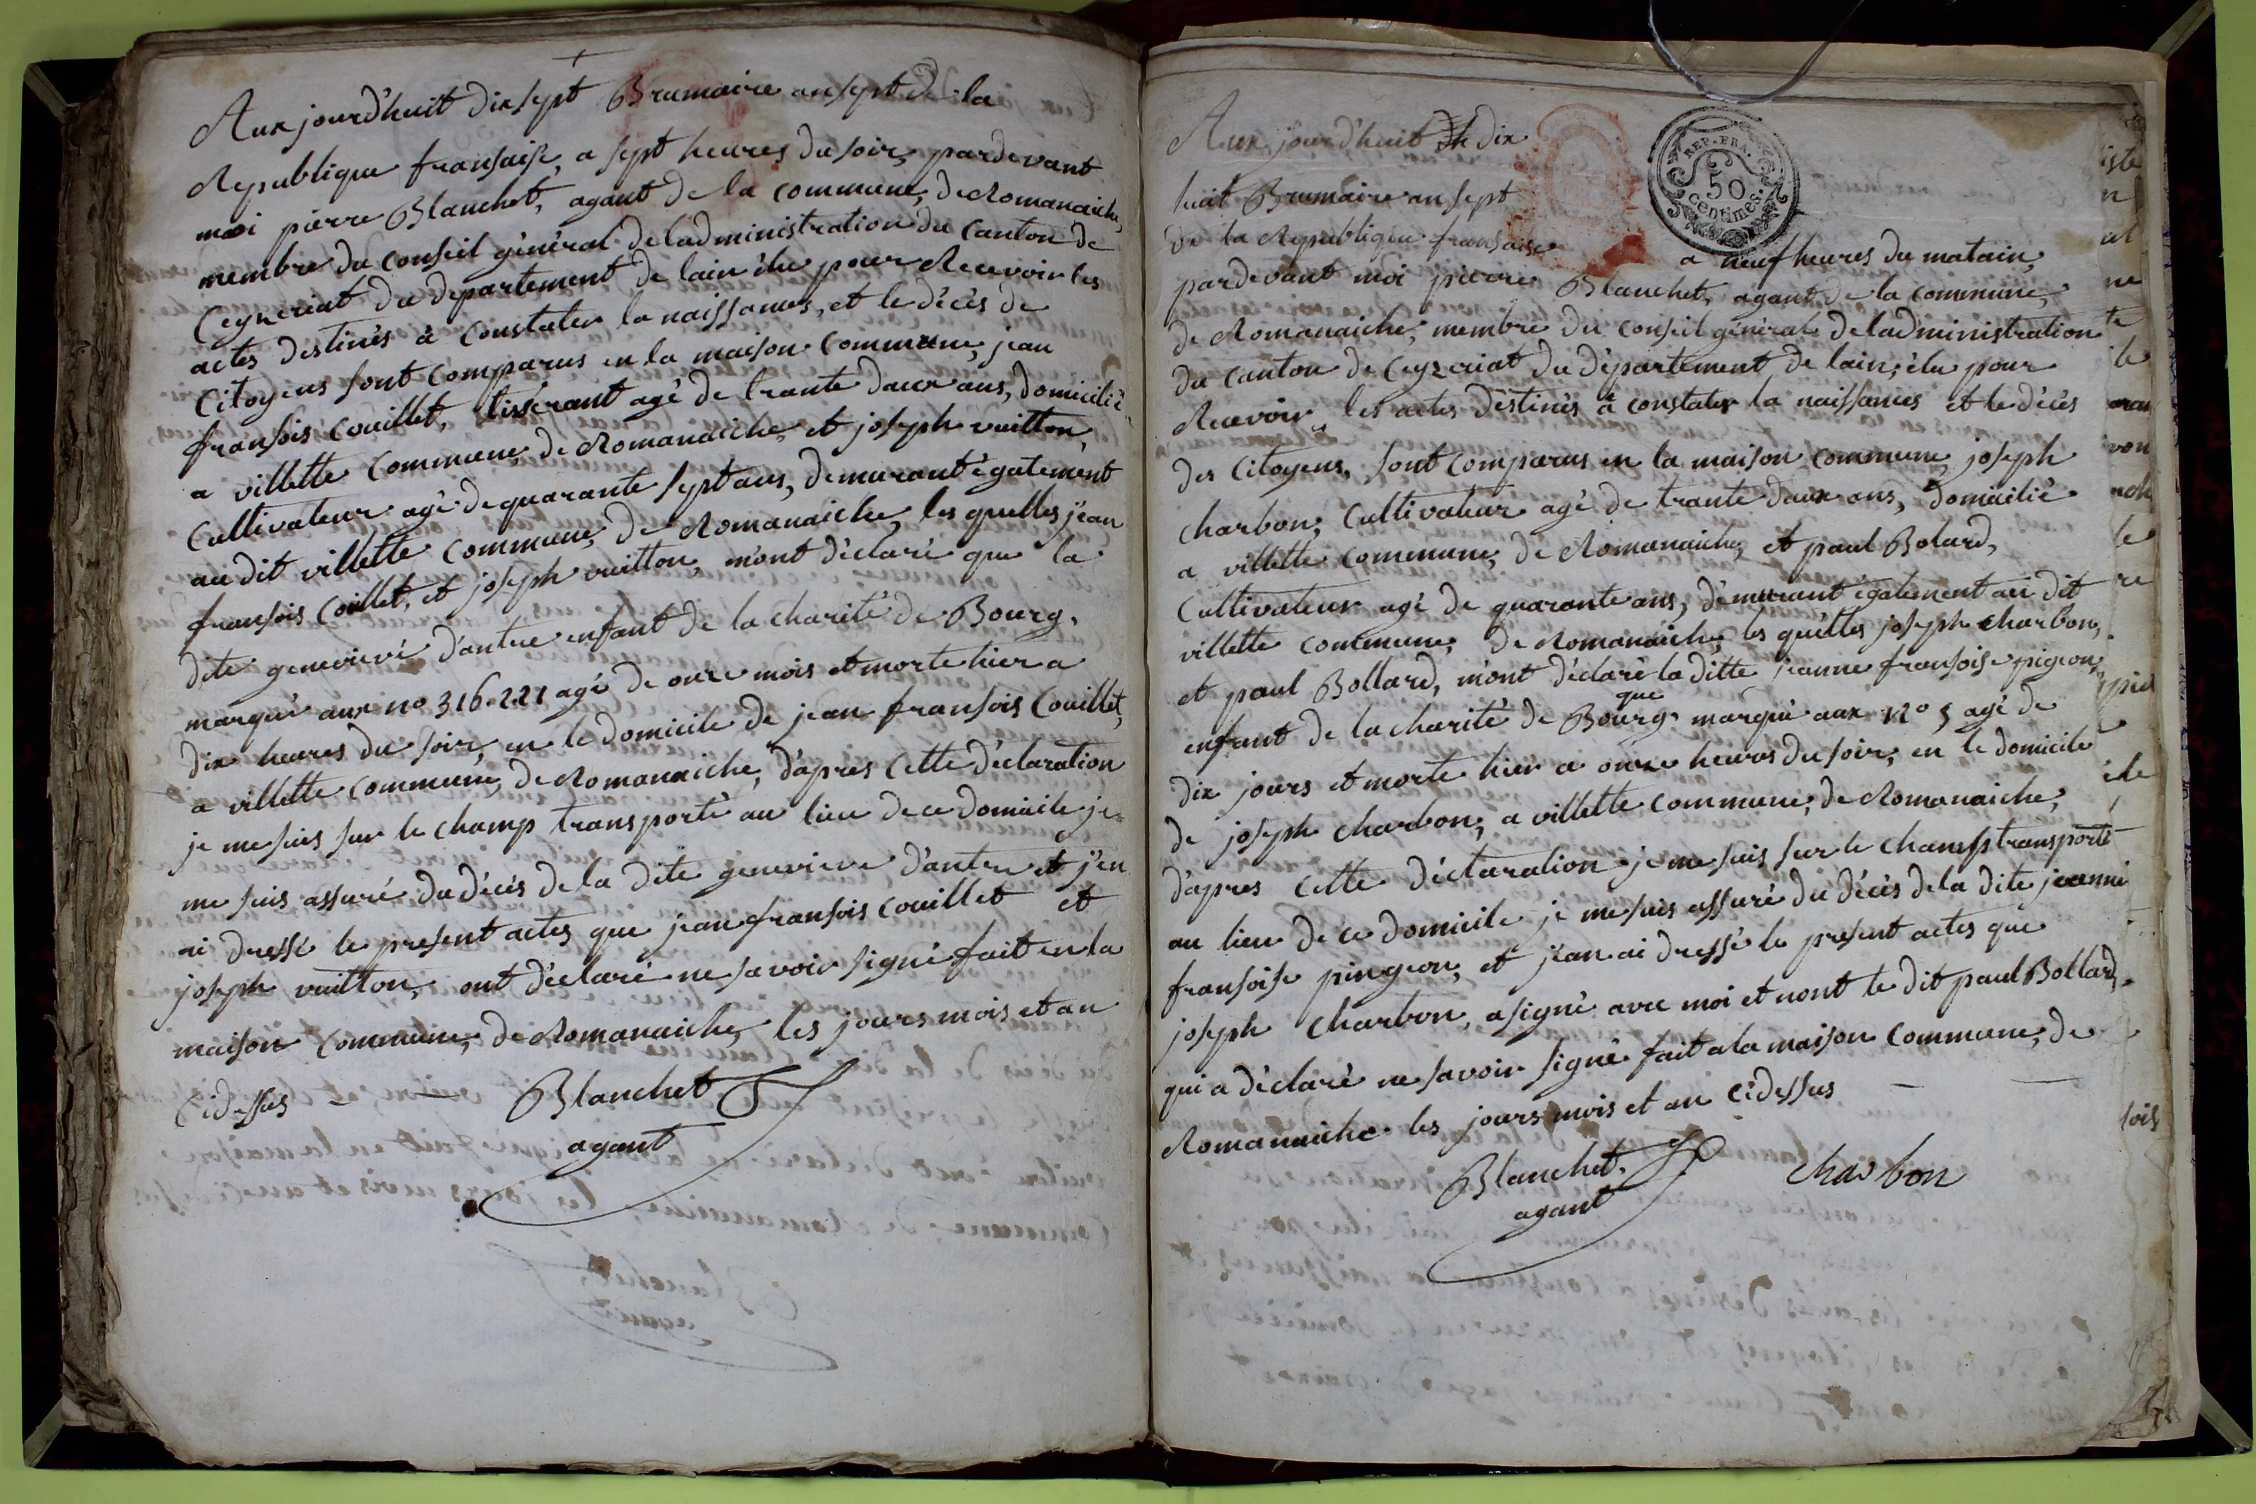 Aux jourd'huit dix sept Brumaire an sept de la
Republique fransaise, a sept heures du soir, pardevant
moi pierre Blanchet, agant de la commune, de Romanaiche,
membre du conseil géneral de ladministration du Canton de
Ceyzeriat du departement de lain élu pour Recevoir les
actes destinés à constater la naissances, et le décès de
Citoyens sont comparus en la maison commune, jean
fransois Couillet, tisserant agé de trante daux ans, domicilié
a villette commune, de Romanaiche, et joseph vuitton,
Cultivateur agé de quarante sept ans, demurant également
au dit villette commune, de Romanaiche, les quelles jean
fransois Coillet, et joseph vuitton, m'ont déclaré que la
dite genevieve d'antre enfant de la charité de Bourg,
marqué aux no 316-221 agé de onze mois et morte hier a
dix heures du soir, en le domicile de jean fransois Couillet,
a villette commune, de Romanaiche, d'apres Cette déclaration
je me suis sur le champ transporté au lieu de ce domicile je
me suis assuré du décès de la dite genevieve d'antre et j'en
ai dressé le present actes que jean fransois couillet et
joseph vuitton, ont déclaré ne savoir signé fait en la
maison commune, de Romanaiche, les jours mois et an
Cidessus
Blanchet
agant
Aux jourd'huit dix
huit Brumaire an sept
de la Republique fransaise
REP. FRA.
50
centimes.
a neuf heures du matain,
pardevant moi pierre Blanchet, agant de la commune,
de Romanaiche, membre du conseil géneral de ladministration
du canton de Ceyzeriat du département de lain, élu pour
Recevoir les actes destinés à constater la naissances et le décès
des Citoyens, sont comparus en la maison commune, joseph
charbon, Cultivateur agé de trante daux ans, domicilié
a villette commune, de Romanaiche, et paul Bolard,
Cultivateur agé de quarante ans, demurant également au dit
villette commune, de Romanaiche, les quelles joseph charbon,
et paul Bollard, m'ont déclaré la ditte jeanne fransoise pigeon,
que
enfant de la charité de Bourg marqué aux no 5 agé de
dix jours et morte hier a onze heures du soir, en le domicile
de joseph charbon, a villette commune, de Romanaiche,
d'apres cette déclaration je me suis sur le champs transporté
au lieu de ce domicile je me suis assuré du décès de la dite jeanne
fransoise pingeon, et j'ean ai dressé le present actes que
joseph charbon, a signé avec moi et nont le dit paul Bollard,
qui a déclaré ne savoir signé fait a la maison commune, de
Romanaiche les jours mois et an cidessus
Blanchet,
agant
charbon